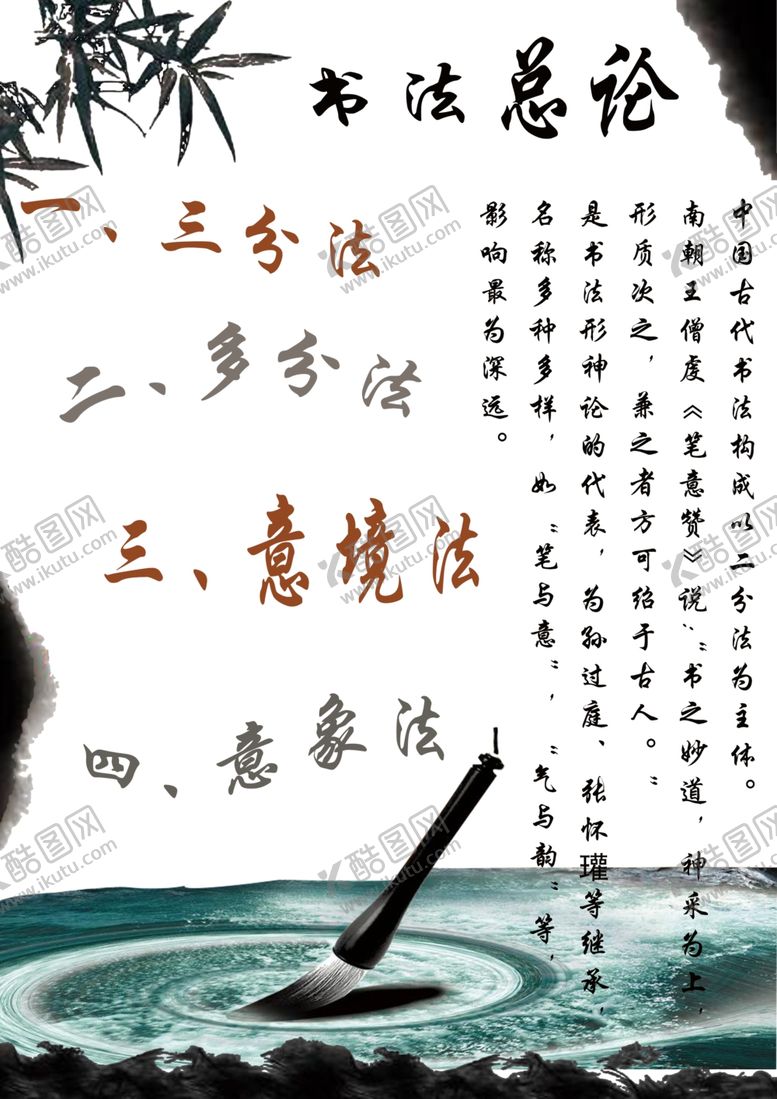 书法总论
一、三分法
二、多分法
三、意境法
四、意象法
中国古代书法构成以二分法为主体。
南朝王僧虔《笔意赞》说:“书之妙道,神采为上,
形质次之,兼之者方可绍于古人。”
是书法形神论的代表,为孙过庭、张怀瓘等继承,
名称多种多样,如“笔与意”,“气与韵”等,
影响最为深远。
酷图网
www.ikutu.com